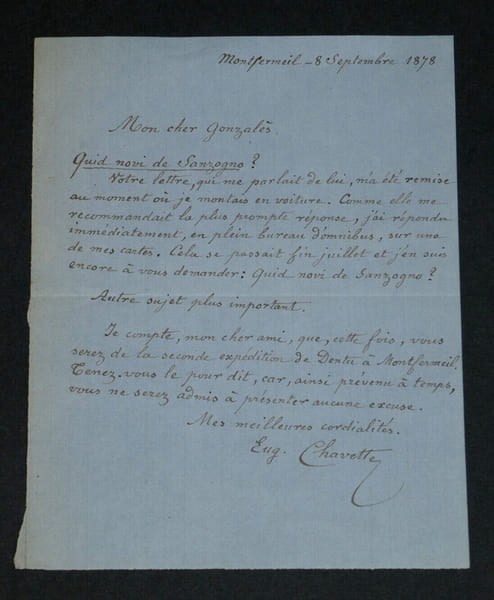 Montfermeil - 8 Septembre 1878
Mon cher Gonzalès.
Quid novi de Sanzogno ?
Votre lettre, qui me parlait de lui, m'a été remise
au moment où je montais en voiture. Comme elle me
recommandait la plus prompte réponse, j'ai répondu
immédiatement, en plein bureau d'omnibus, sur une
de mes cartes. Cela se passait fin juillet et j'en suis
encore à vous demander : Quid novi de Sanzogno ?
Autre sujet plus important.
Je compte, mon cher ami, que, cette fois, vous
serez de la seconde expédition de Dentu à Montfermeil.
Tenez-vous le pour dit, car, ainsi prévenu à temps,
vous ne serez admis à présenter aucune excuse.
Mes meilleures cordialités.
Eug. Chavette